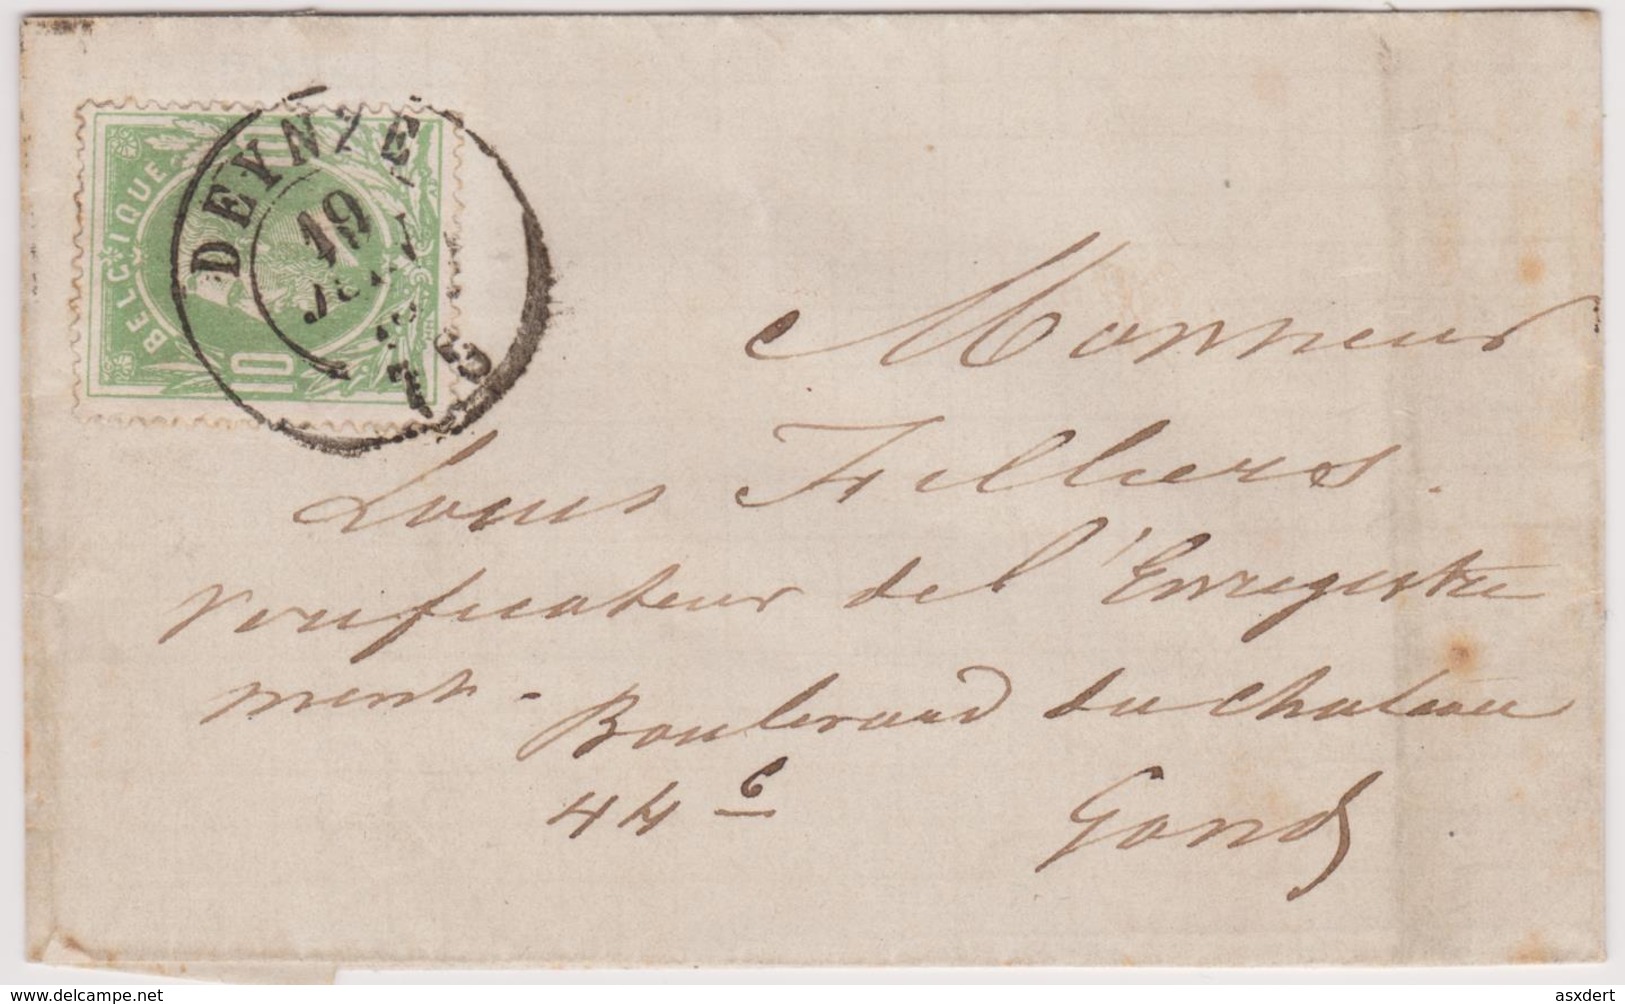 BELGIQUE
10
10
DEYNZE
19
JUIN
7
Monsieur
Louis Filliers.
Verificateur de l'Enregistre
ment -
Boulevard du Chateau
44 c
Gand
© asxdert